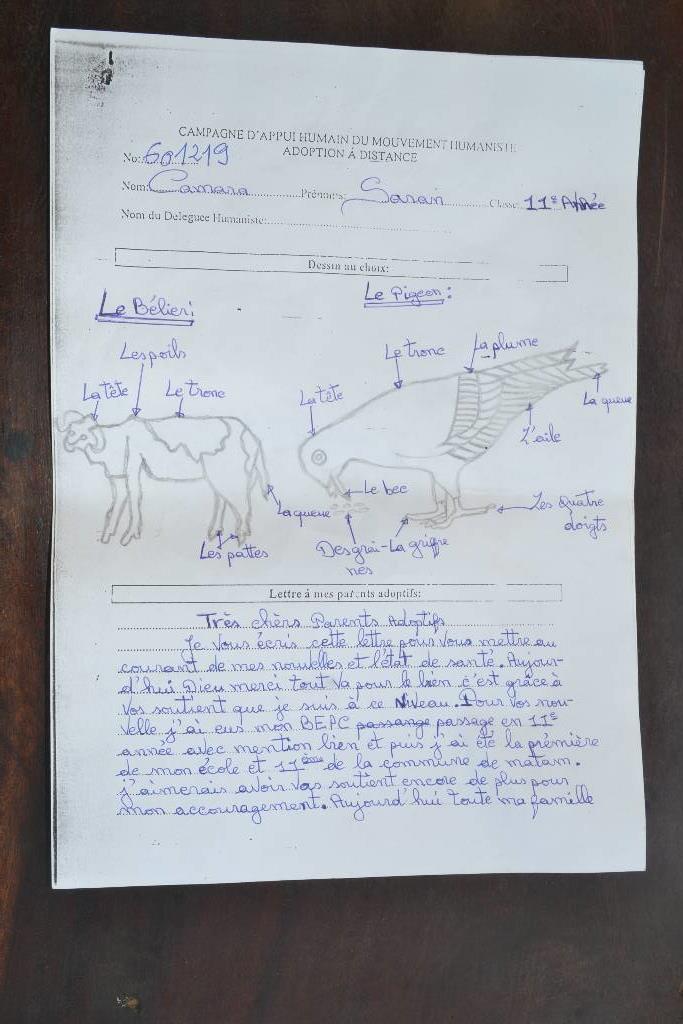 CAMPAGNE D'APPUI HUMAIN DU MOUVEMENT HUMANISTE
ADOPTION À DISTANCE
No: 601219
Nom: Camara Prénoms: Saran Classe: 11e Année
Nom du Deleguee Humaniste:
Dessin au choix:
Le Bélier: Le Pigeon:
Les poils Le tronc La plume
La tête Le tronc La tête La queue
L'aile
Le bec
La queue Les quatre
doigts
Les pattes Des grai- La griffe
nes
Lettre à mes parents adoptifs:
Très chèrs Parents Adoptifs
Je vous écris cette lettre pour vous mettre au
courant de mes nouvelles et l'état de santé. Aujour-
d'hui Dieu merci tout va pour le bien c'est grâce à
vos soutient que je suis à ce Niveau. Pour vos nou-
velle j'ai eus mon BEPC passange passage en 11e
année avec mention bien et puis j'ai été la prémière
de mon école et 11ème de la commune de matam.
j'aimerais avoir vos soutient encore de plus pour
mon accouragement. Aujourd'hui toute ma famille